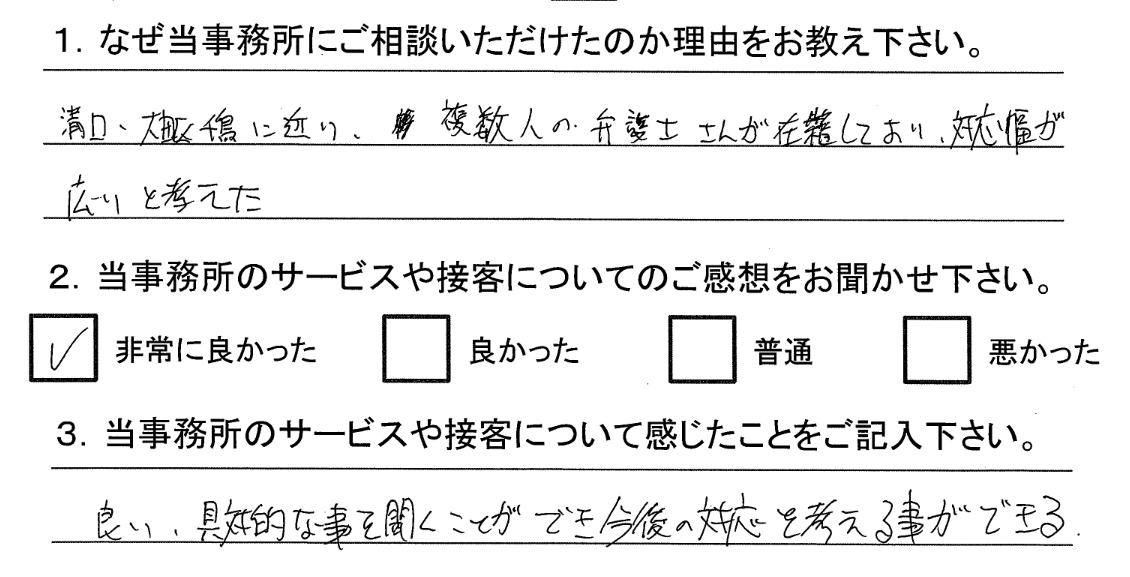 1. なぜ当事務所にご相談いただけたのか理由をお教え下さい。
溝口、に近い、複数人の弁護士さんが在籍しており、対応幅が
広いと考えた
2. 当事務所のサービスや接客についてのご感想をお聞かせ下さい。
非常に良かった 良かった 普通 悪かった
3. 当事務所のサービスや接客について感じたことをご記入下さい。
良い、具対的な事を聞くことができ今後の対応を考える事ができる.